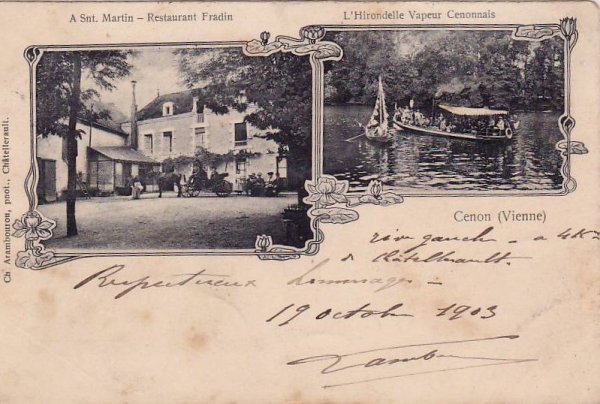 A Snt. Martin – Restaurant Fradin
L'Hirondelle Vapeur Cenonnais
Ch. Arambourou, phot., Châtellerault.
Cenon (Vienne)
rive gauche – a 4 K
à Châtellerault.
Respectueux hommages –
19 octobre 1903